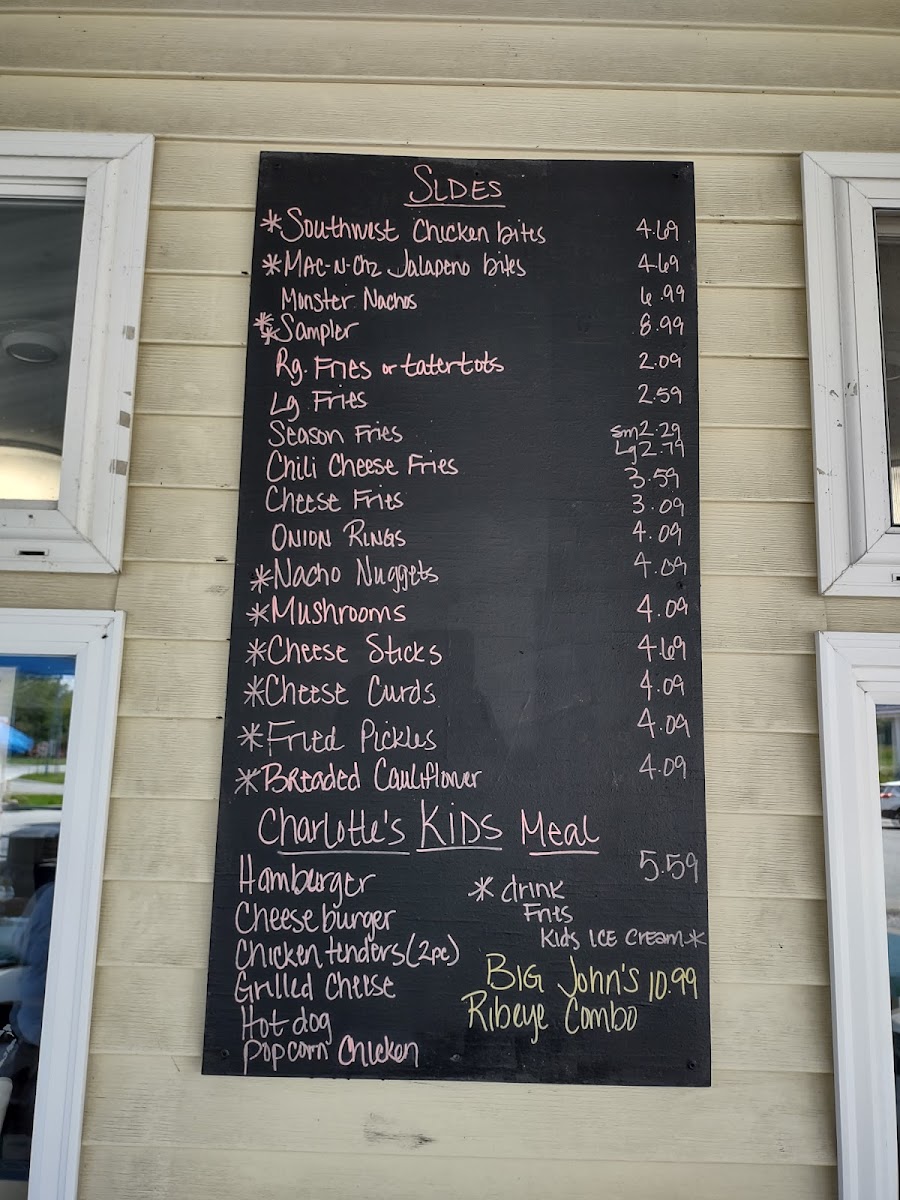 SIDES
*Southwest Chicken bites 4.69
*MAC-N-Chz Jalapeno bites 4.69
Monster Nachos 6.99
**Sampler 8.99
Rg. Fries or tatertots 2.09
Lg Fries 2.59
Season Fries sm 2.29
Lg 2.79
Chili Cheese Fries 3.59
Cheese Fries 3.09
ONION RINGS 4.09
*Nacho Nuggets 4.09
*Mushrooms 4.09
*Cheese Sticks 4.69
*Cheese Curds 4.09
*Fried Pickles 4.09
*Breaded Cauliflower 4.09
Charlotte's KIDS Meal
5.59
Hamburger
Cheeseburger
Chicken tenders (2pc)
Grilled Cheese
Hot dog
Popcorn Chicken
* drink
Fries
Kids ICE Cream *
BIG John's 10.99
Ribeye Combo